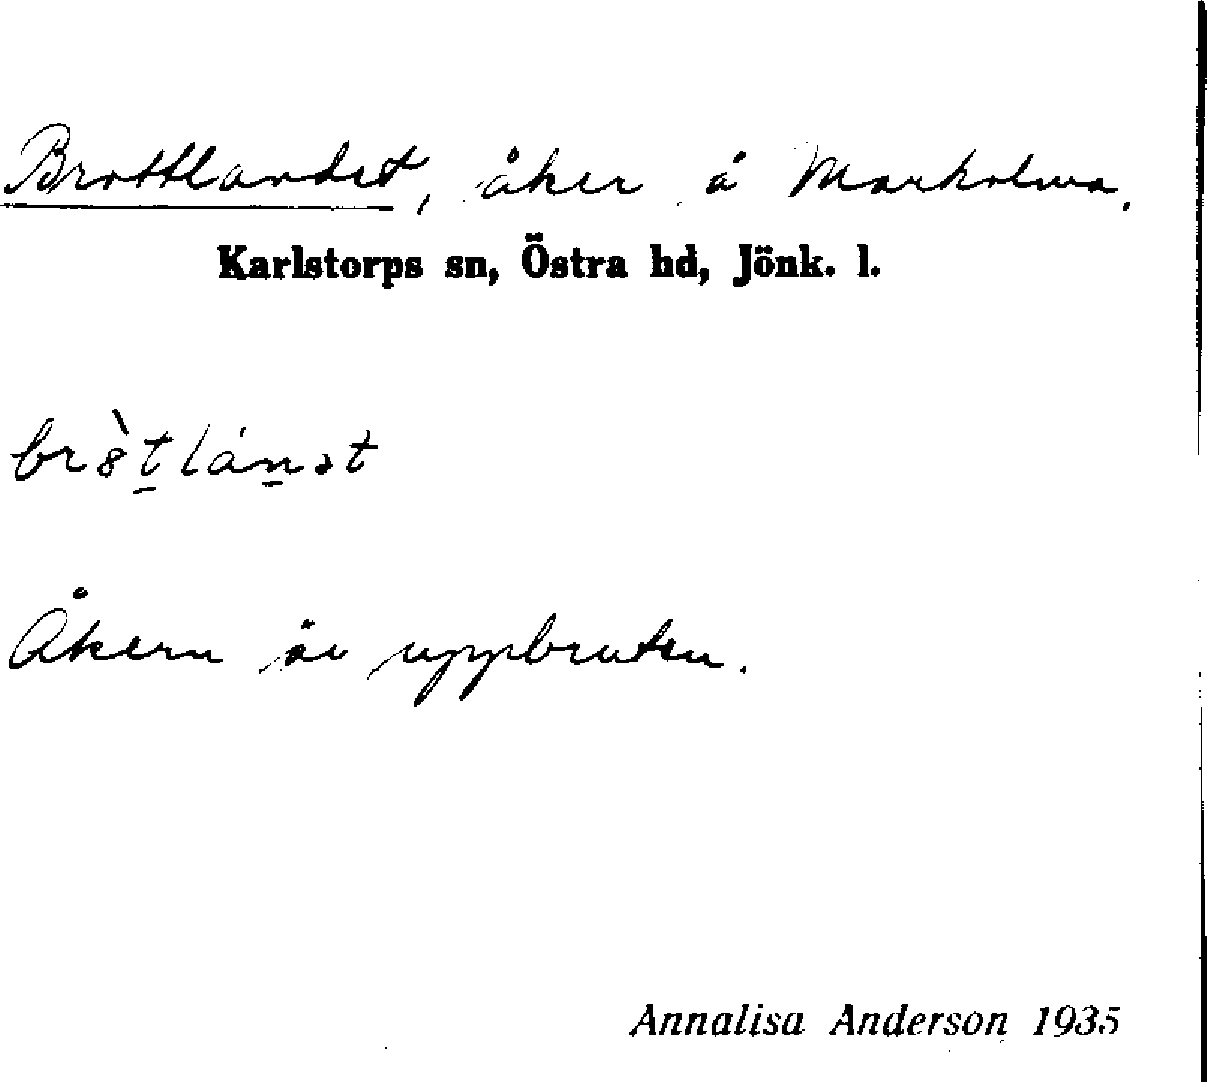 Brottlandet, åker å Markolma.
Karlstorps sn, Östra hd, Jönk. l.
Åkern är uppbruten.
Annalisa Anderson 1935